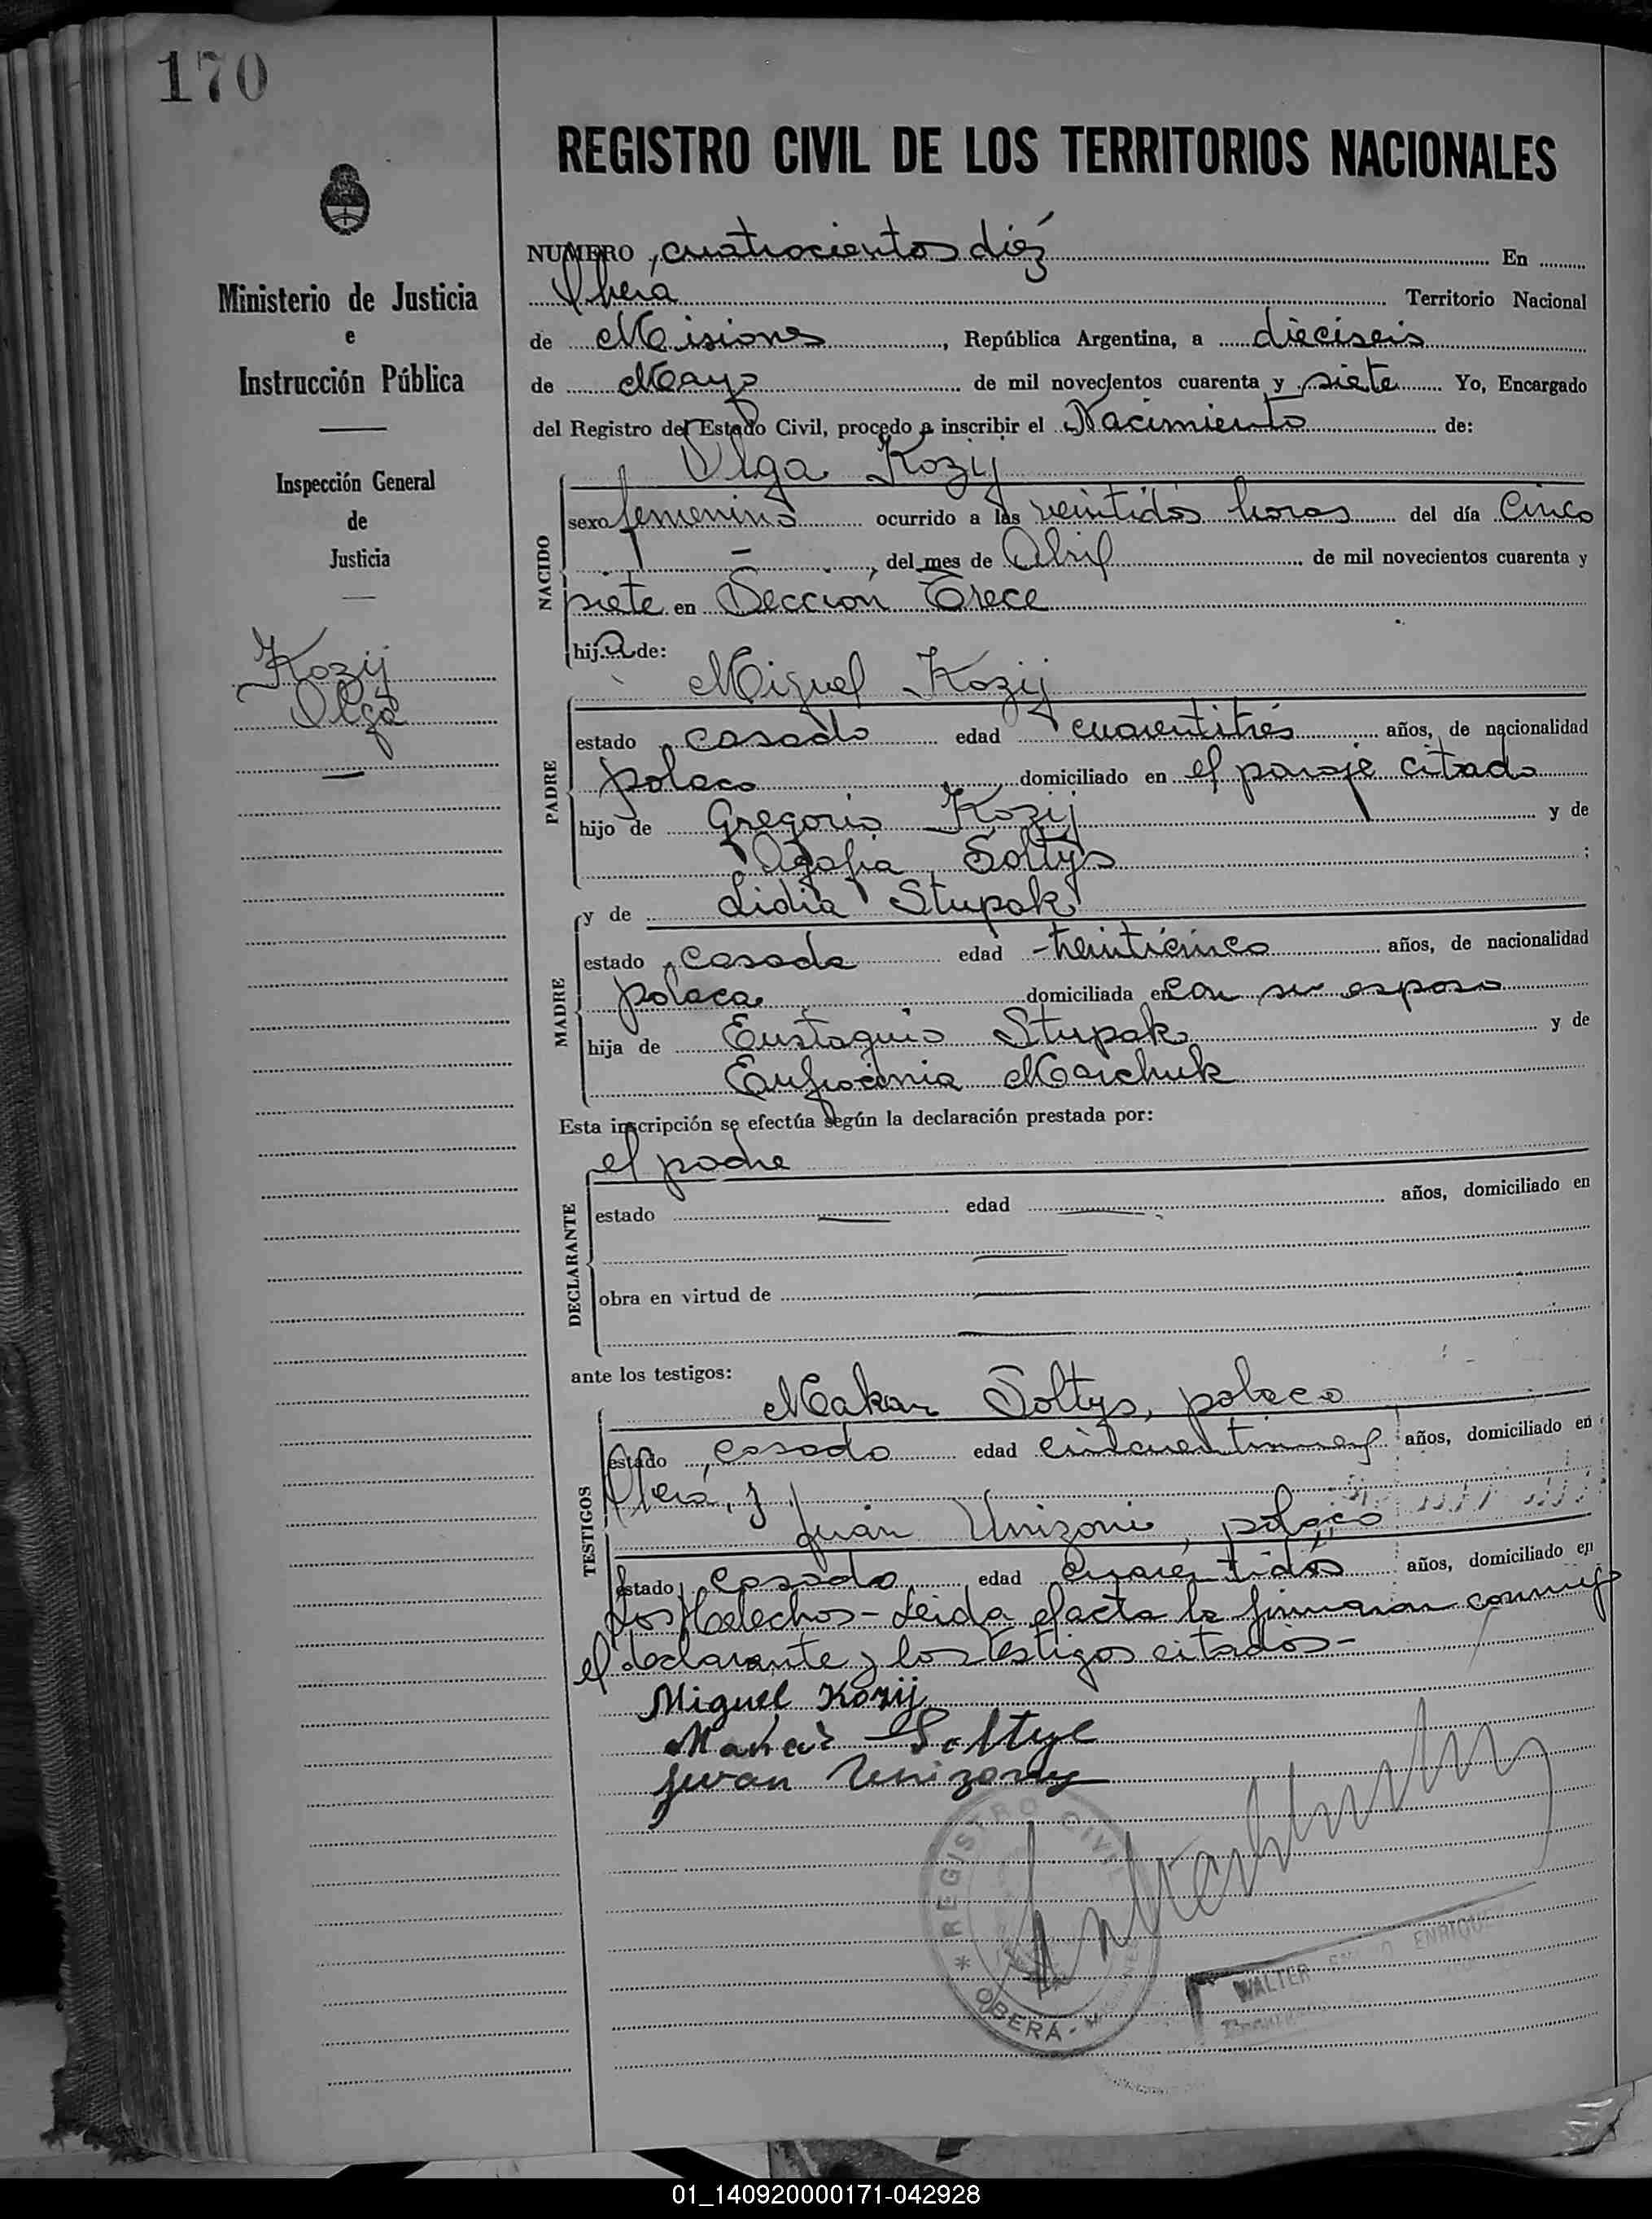 170
REGISTRO CIVIL DE LOS TERRITORIOS NACIONALES
Ministerio de Justicia
e
Instrucción Pública
Inspección General
de
Justicia
Kozij
Olga
NUMERO cuatrocientos diéz En
Oberá Territorio Nacional
de Misiones, República Argentina, a dieciseis
de Mayo de mil novecientos cuarenta y siete Yo, Encargado
del Registro del Estado Civil, procedo a inscribir el Nacimiento de:
Olga Kozij
NACIDO
sexo femenino ocurrido a las veintidós horas del día Cinco
, del mes de Abril de mil novecientos cuarenta y
siete en Sección Trece
hija de:
Miguel Kozij
PADRE
estado casado edad cuarentitrés años, de nacionalidad
polaco domiciliado en el paraje citado
hijo de Gregorio Kozij y de
Agafia Soltys ;
y de Lidia Stupak
MADRE
estado casada edad treinticinco años, de nacionalidad
polaca domiciliada en con su esposo
hija de Eustaquio Stupak y de
Eufrocinia Marchuk
Esta inscripción se efectúa según la declaración prestada por:
el padre
DECLARANTE
estado edad años, domiciliado en
obra en virtud de
ante los testigos:
Makar Soltys, polaco
TESTIGOS
estado casado edad años, domiciliado en
Oberá, y
Juan Unizoni, polaco
estado casado edad cuarentidós años, domiciliado en
Los Helechos - Leida el acta la firmaron conmigo
el declarante y los testigos citados -
Miguel Kozij
Juan
REGISTRO CIVIL
* OBERÁ -
WALTER ENRIQUE
01_140920000171-042928